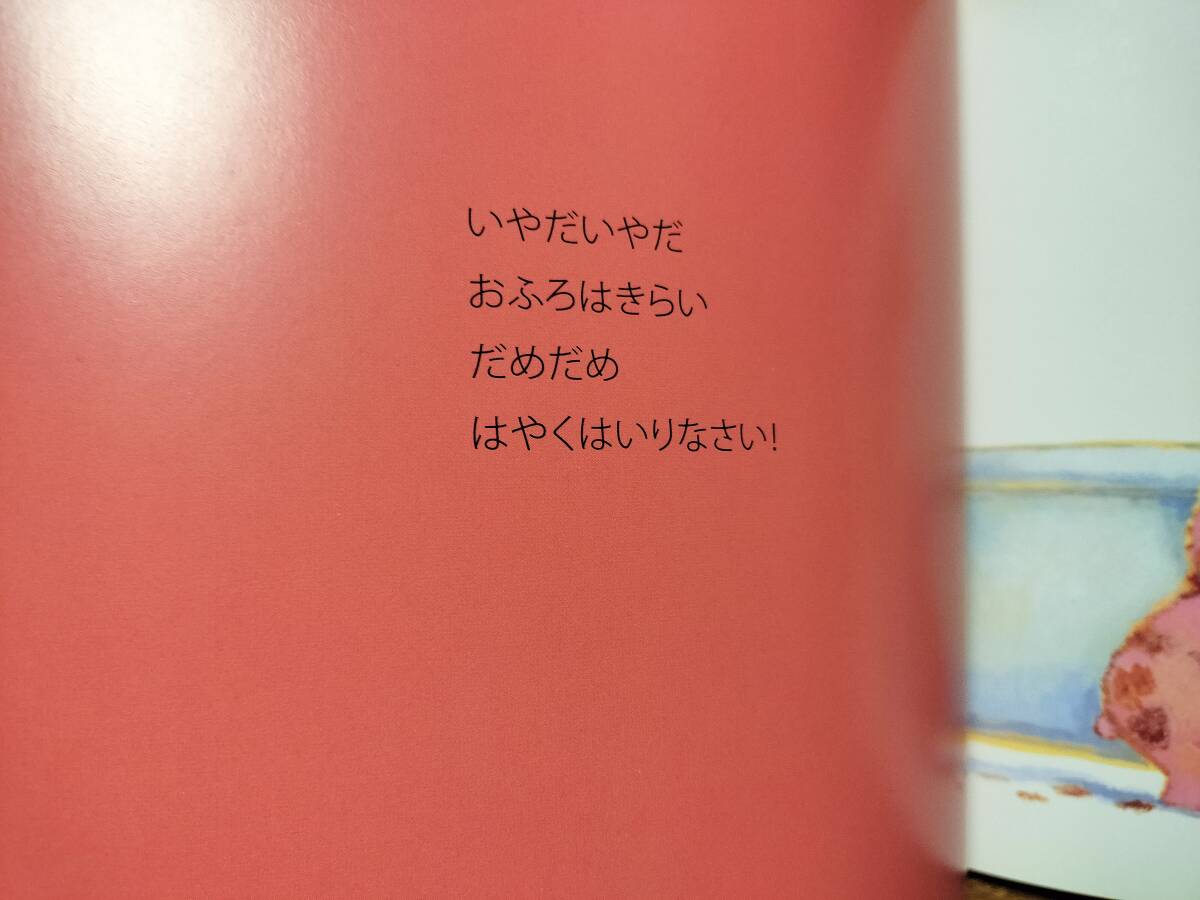 いやだいやだ
おふろはきらい
だめだめ
はやくはいりなさい!